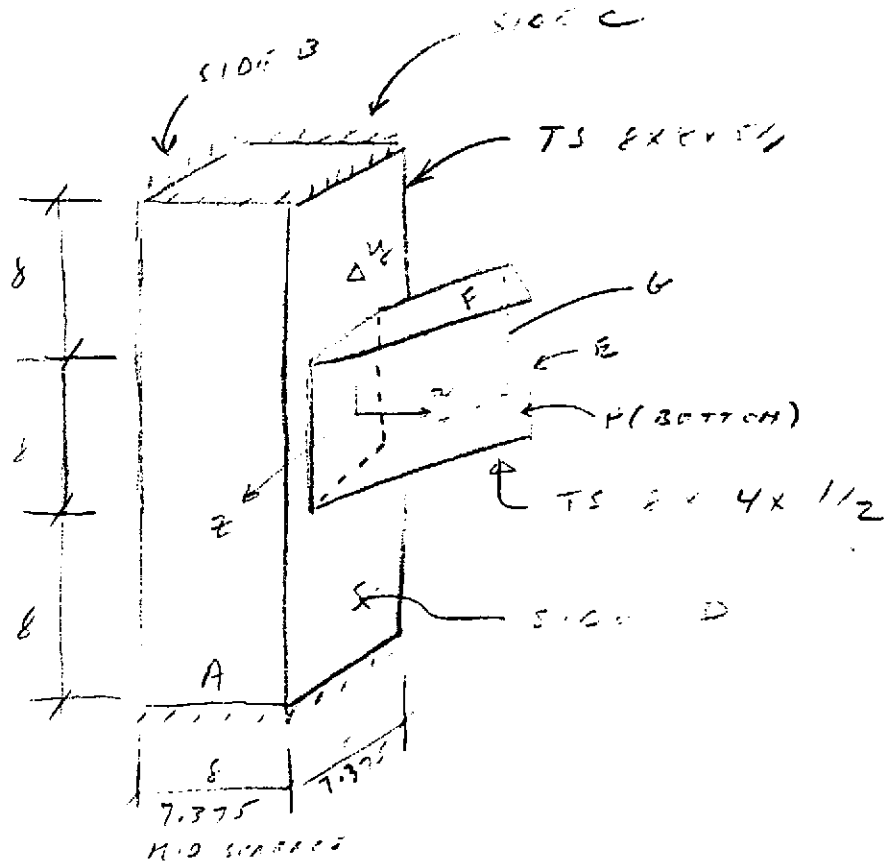 SIDE B
SIDE C
TS 8x8x5/8
8
8
8
Δ
y
F
G
E
x
H (BOTTOM)
z
TS 8 x 4 x 1/2
SIDE D
A
8
7.375
7.375
MID SURFACE